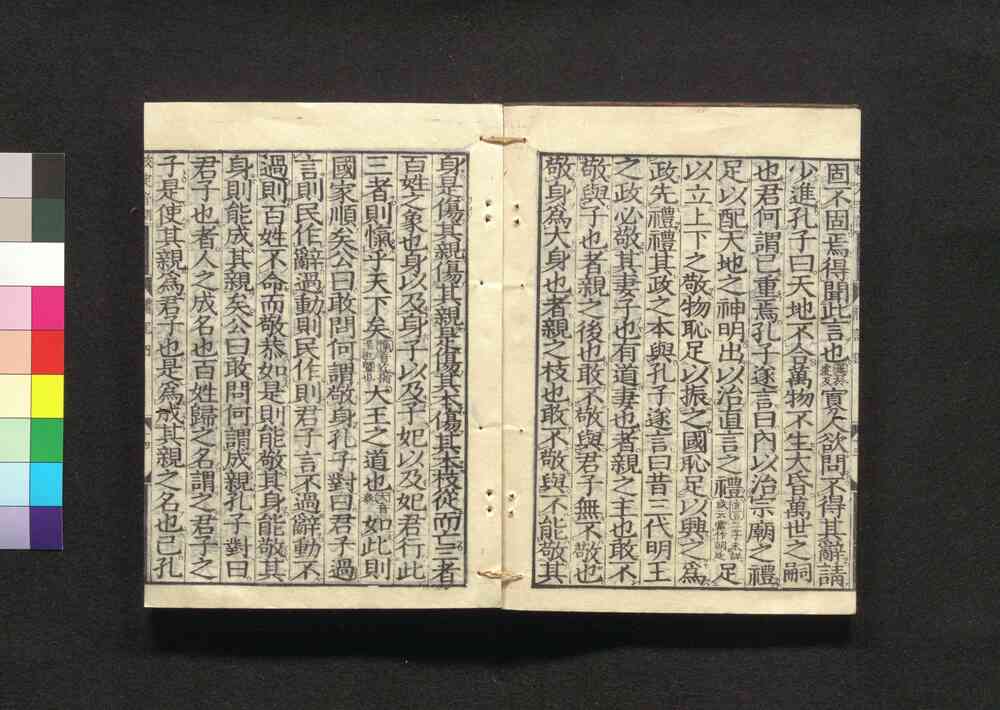 固不固焉得聞此言也寡人欲問不得其辭請
少進孔子曰天地不合萬物不生大昏萬世之嗣
也君何謂已重焉孔子遂言曰內以治宗廟之禮
足以配天地之神明出以治直言之禮足
以立上下之敬物恥足以振之國恥足以興之爲
政先禮禮其政之本與孔子遂言曰昔三代明王
之政必敬其妻子也有道妻也者親之主也敢不
敬與子也者親之後也敢不敬與君子無不敬也
敬身爲大身也者親之枝也敢不敬與不能敬其
身是傷其親傷其親是傷其本傷其本枝從而亡三者
百姓之象也身以及身子以及子妃以及妃君行此
三者則愾乎天下矣大王之道也如此則
國家順矣公曰敢問何謂敬身孔子對曰君子過
言則民作辭過動則民作則君子言不過辭動不
過則百姓不命而敬恭如是則能敬其身能敬其
身則能成其親矣公曰敢問何謂成親孔子對曰
君子也者人之成名也百姓歸之名謂之君子之
子是使其親爲君子也是爲成其親之名也已孔